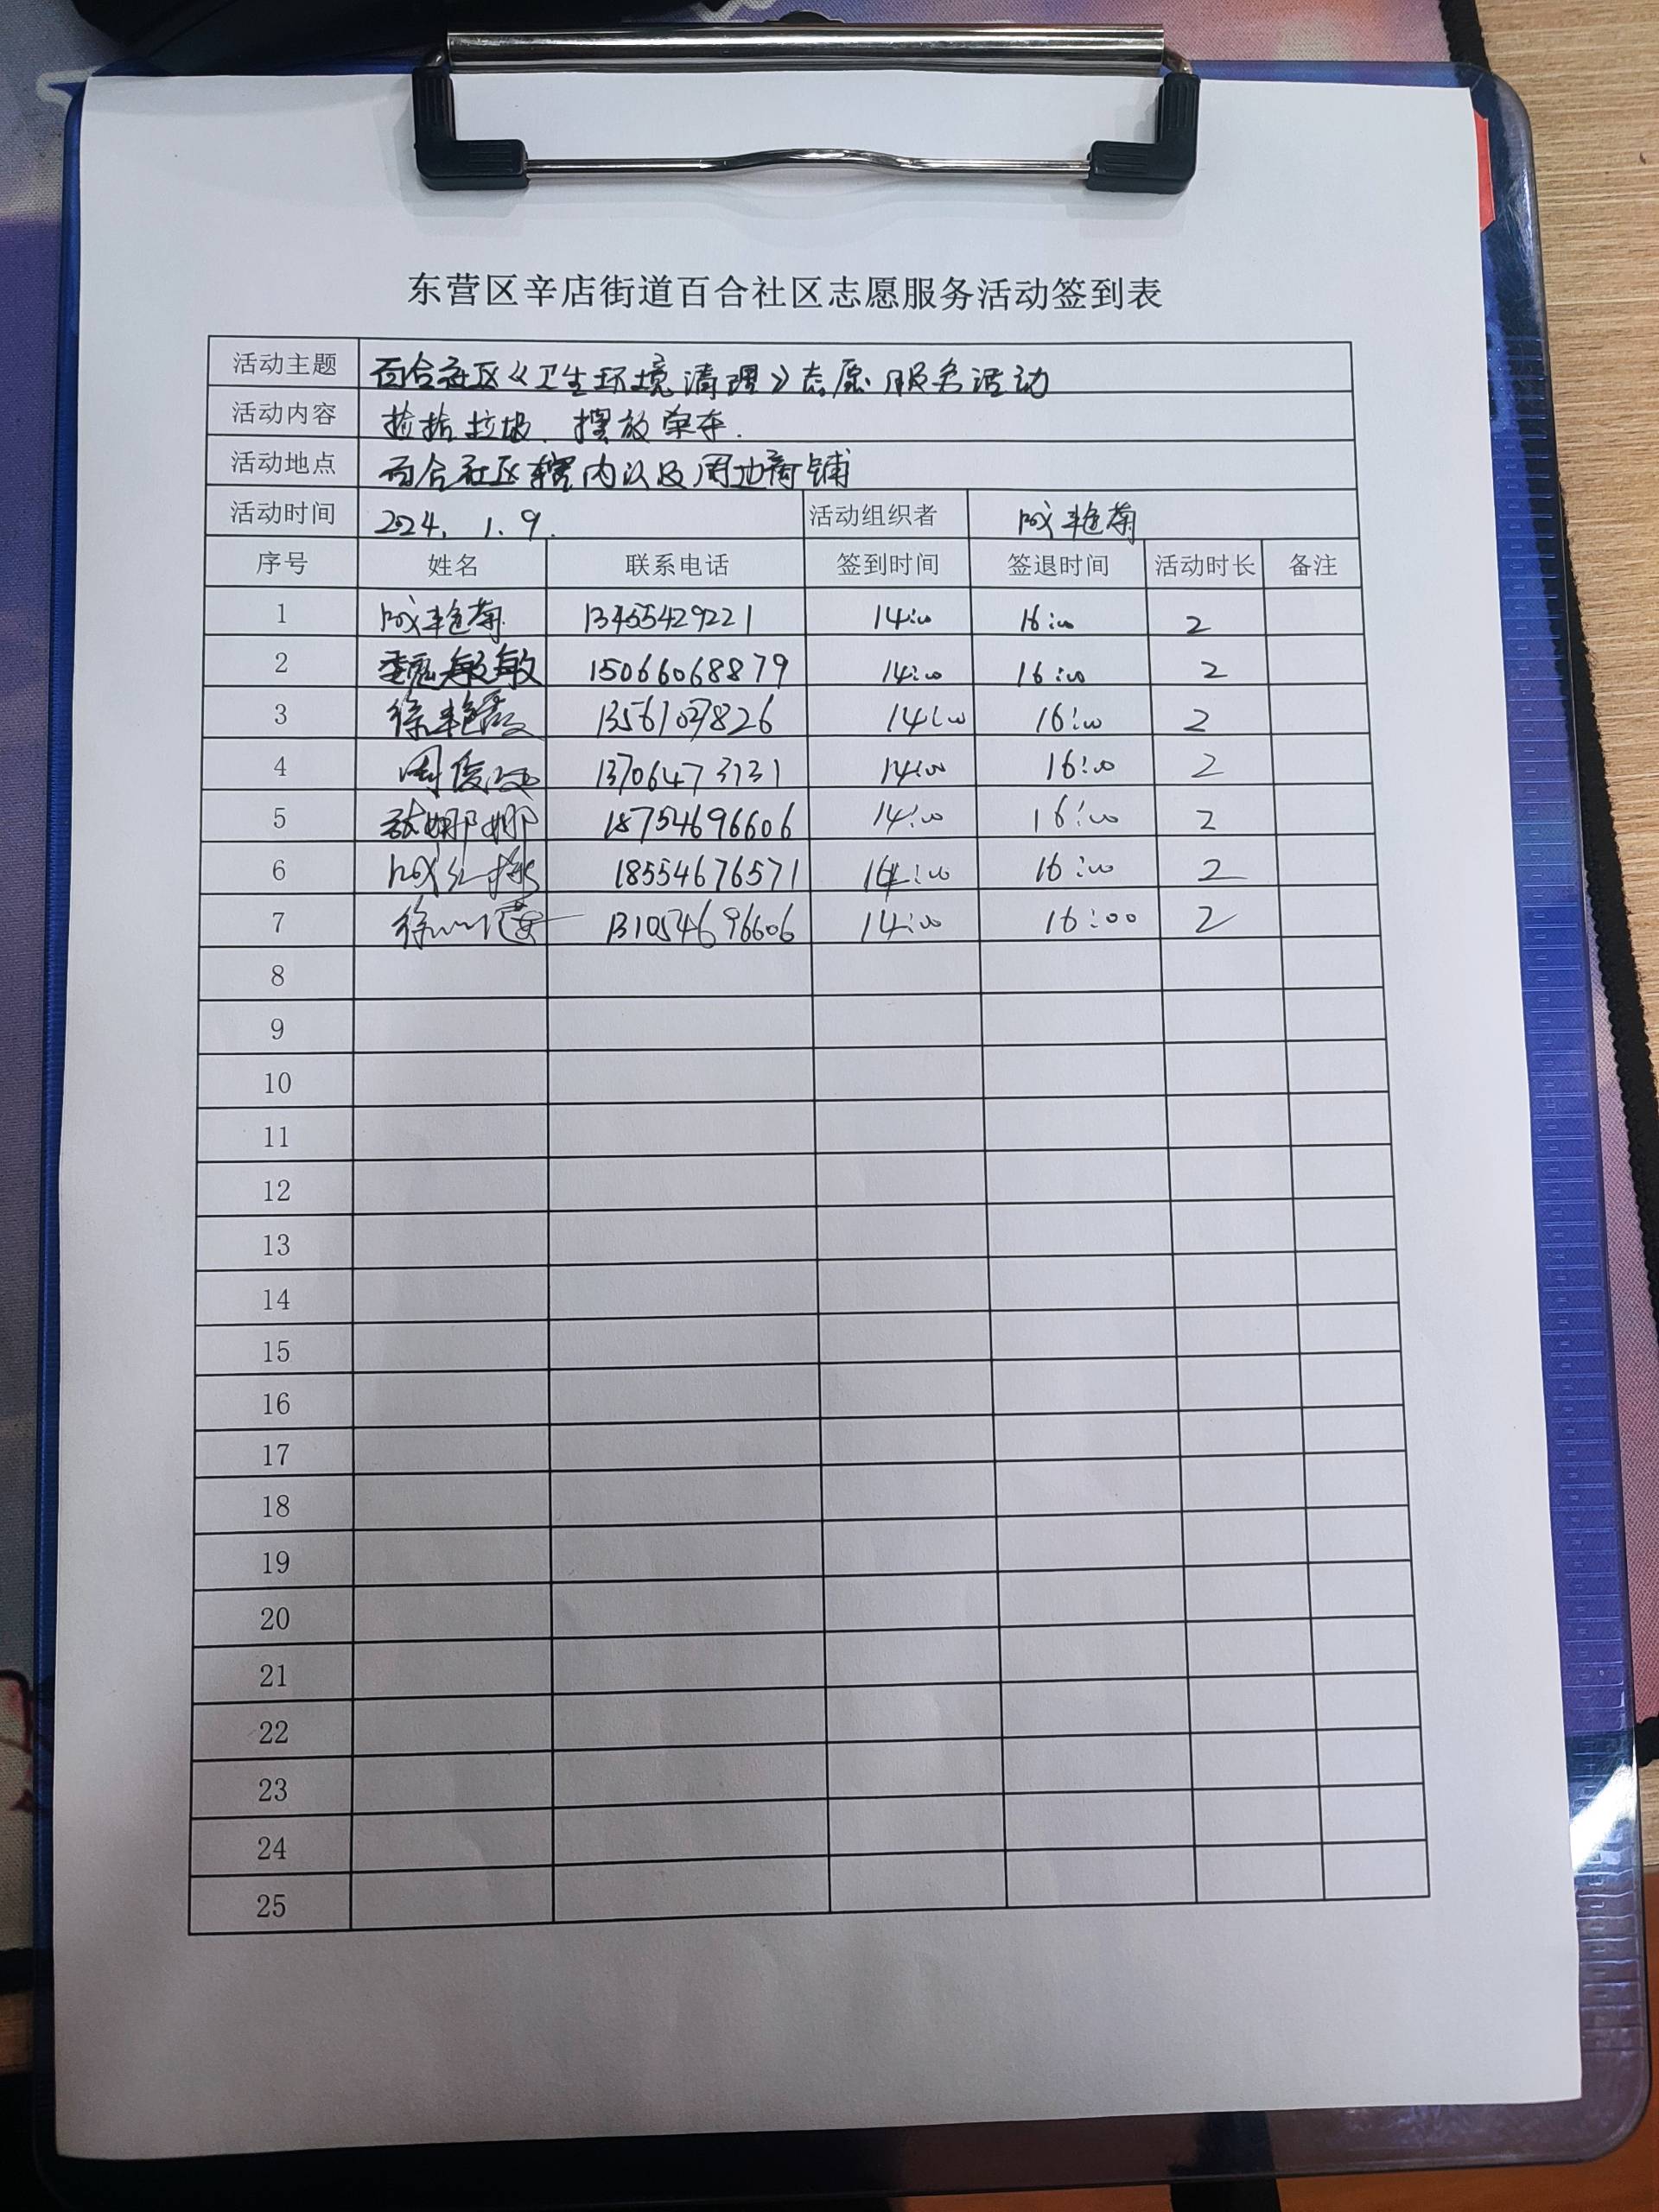 东营区辛店街道百合社区志愿服务活动签到表
活动主题 百合社区《卫生环境清理》志愿服务活动
活动内容 捡拾垃圾、摆放单车.
活动地点 百合社区辖内以及周边商铺
活动时间 2024. 1. 9. 活动组织者 成艳菊
序号 姓名 联系电话 签到时间 签退时间 活动时长 备注
1 成艳菊 13455429221 14:00 16:00 2
2 魏敏敏 15066068879 14:00 16:00 2
3 徐艳霞 14:00 16:00 2
4 周俊 13706473131 14:00 16:00 2
5 张娜娜 18754696606 14:00 16:00 2
6 成红梅 18554676571 14:00 16:00 2
7 徐 131054696606 14:00 16:00 2
8
9
10
11
12
13
14
15
16
17
18
19
20
21
22
23
24
25